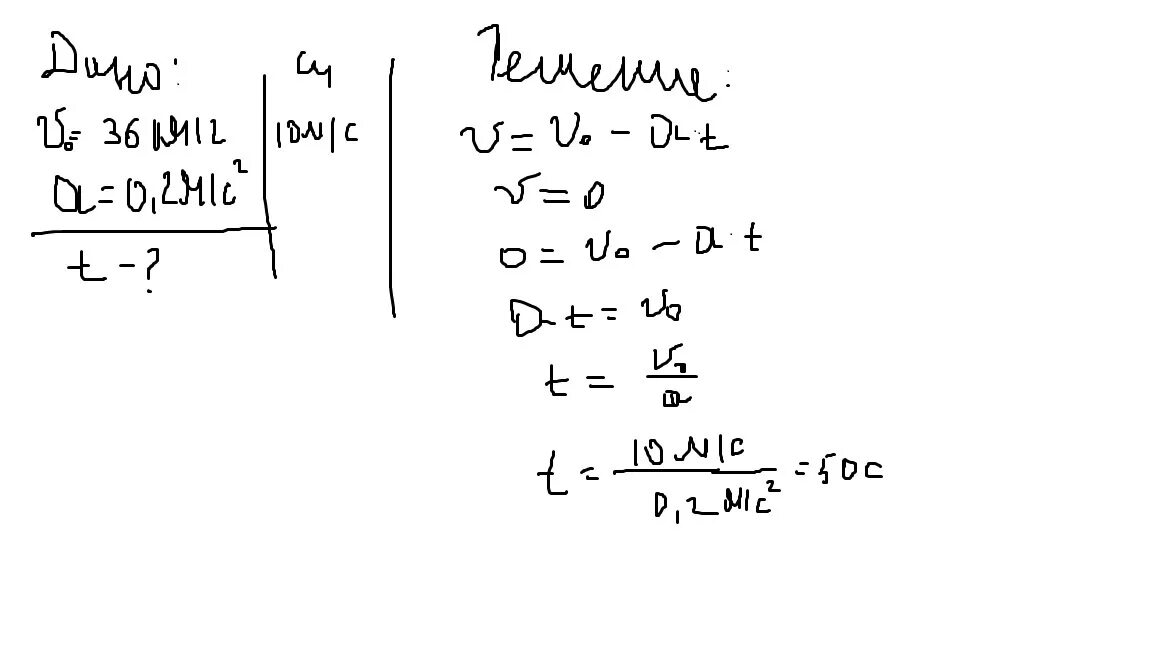 Дано:
v₀ = 36 км/ч
a = 0,2 м/с²
t – ?
СИ
10 м/с
Решение:
v = v₀ – a·t
v = 0
0 = v₀ – a·t
a·t = v₀
t = v₀/a
t = 10 м/с / 0,2 м/с² = 50 с